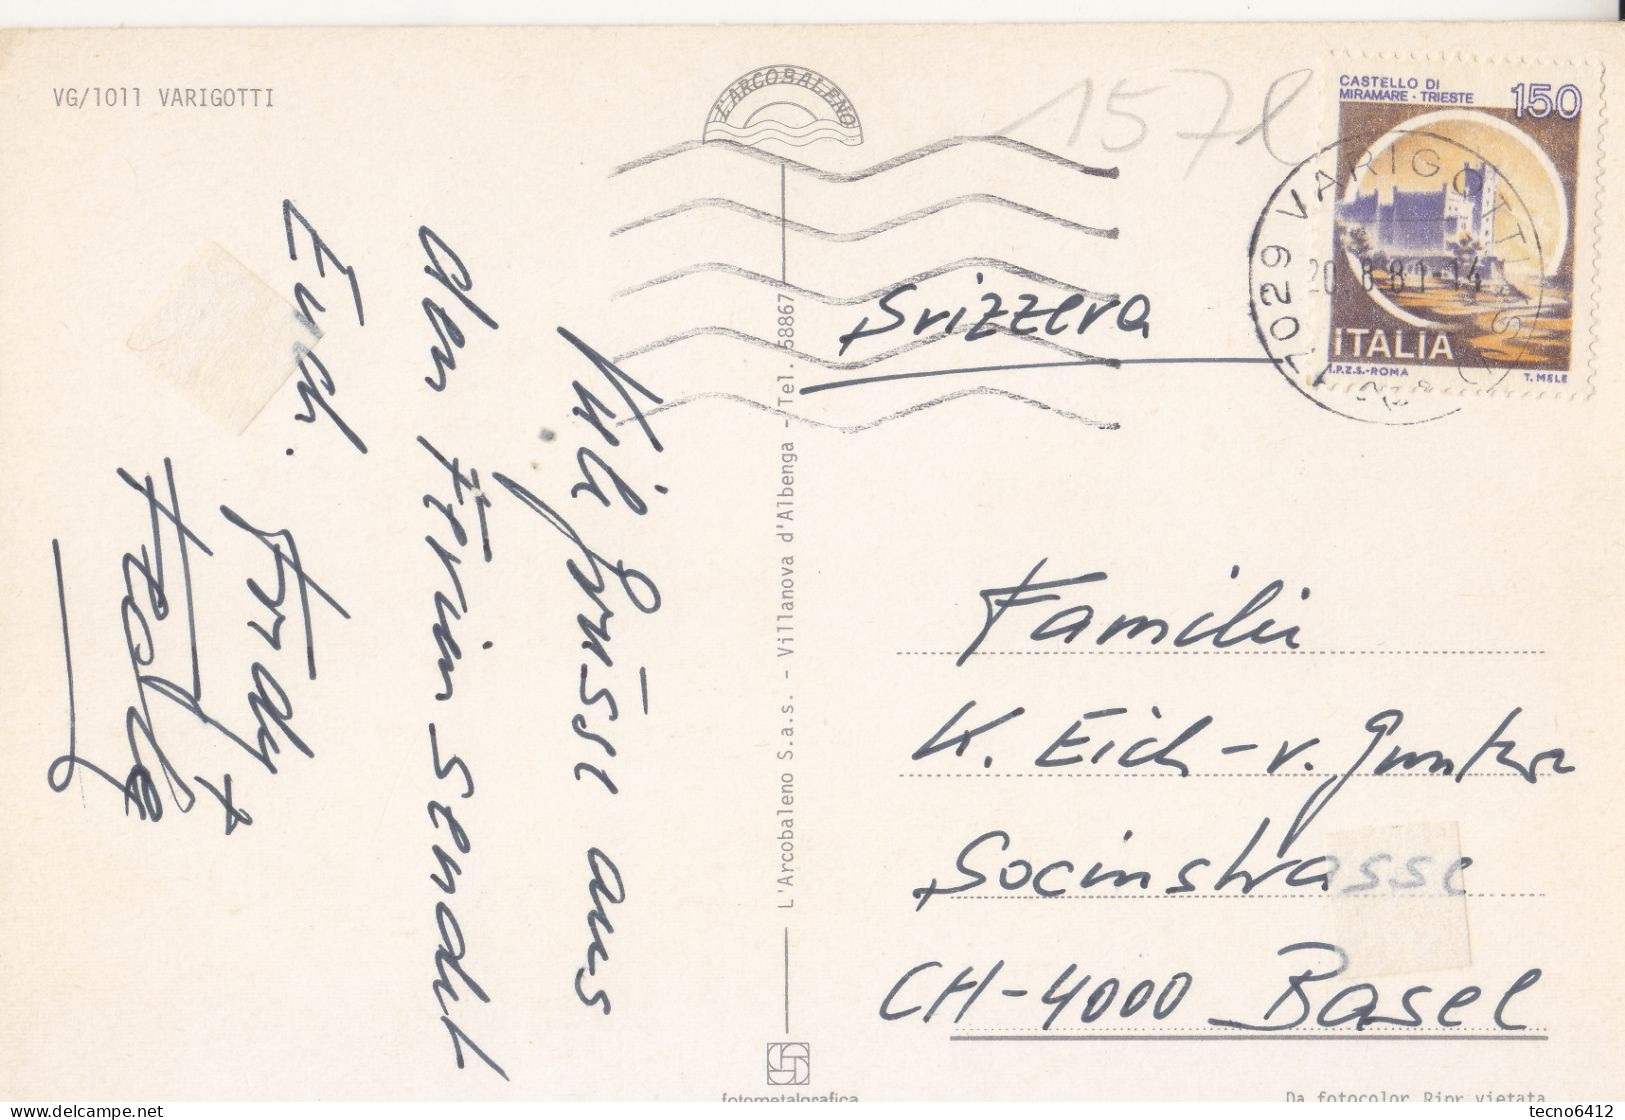 VG/1011 VARIGOTTI
L'ARCOBALENO
157
CASTELLO DI
MIRAMARE - TRIESTE
150
ITALIA
I.P.Z.S.-ROMA
T. MELE
17029 VARIGOTTI
20.8.81-14
Svizzera
Viele Grüsse aus
den Ferien sendet
Euch.
Fredy +
Familie
K. Eich-v.
Socinstrasse
CH-4000 Basel
L'Arcobaleno S.a.s. - Villanova d'Albenga - Tel. 58867
fotometalgrafica
Da fotocolor Ripr vietata
tecno6412